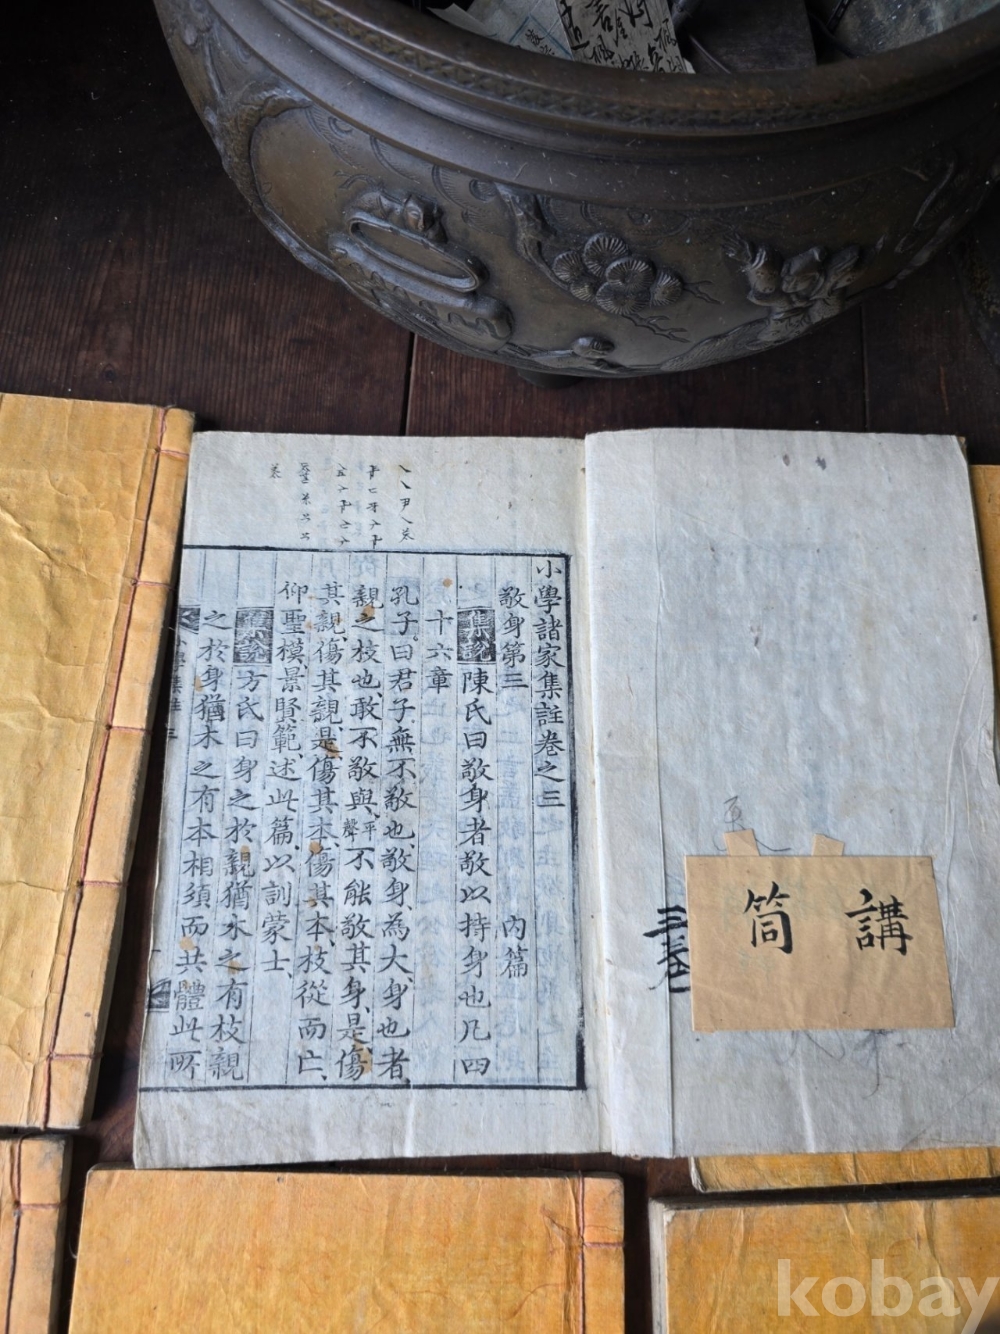 講
筒
小學諸家集註卷之三
敬身第三 內篇
集說 陳氏曰敬身者敬以持身也凡四
十六章
孔子曰君子無不敬也敬身為大身也者
親之枝也敢不敬與平聲不能敬其身是傷
其親傷其親是傷其本傷其本枝從而亡
仰聖模景賢範述此篇以訓蒙士
集說 方氏曰身之於親猶木之有枝親
之於身猶木之有本相須而共體此所
kobay